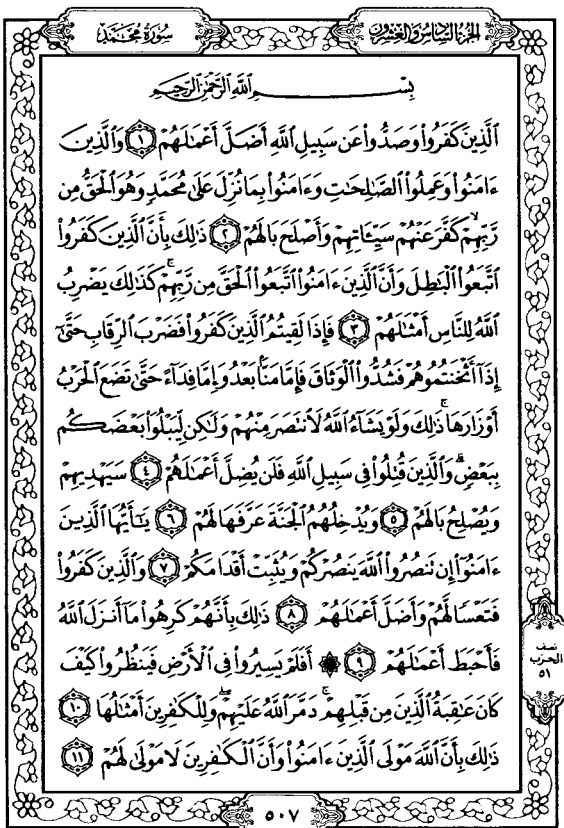 سُورَةُ مُحَمَّدٍ
الجُزْءُ السَّادِسُ وَالْعِشْرُونَ
بِسْمِ اللَّهِ الرَّحْمَٰنِ الرَّحِيمِ
ٱلَّذِينَ كَفَرُوا۟ وَصَدُّوا۟ عَن سَبِيلِ ٱللَّهِ أَضَلَّ أَعْمَٰلَهُمْ ١ وَٱلَّذِينَ
ءَامَنُوا۟ وَعَمِلُوا۟ ٱلصَّٰلِحَٰتِ وَءَامَنُوا۟ بِمَا نُزِّلَ عَلَىٰ مُحَمَّدٍ وَهُوَ ٱلْحَقُّ مِن
رَّبِّهِمْ ۙ كَفَّرَ عَنْهُمْ سَيِّـَٔاتِهِمْ وَأَصْلَحَ بَالَهُمْ ٢ ذَٰلِكَ بِأَنَّ ٱلَّذِينَ كَفَرُوا۟
ٱتَّبَعُوا۟ ٱلْبَٰطِلَ وَأَنَّ ٱلَّذِينَ ءَامَنُوا۟ ٱتَّبَعُوا۟ ٱلْحَقَّ مِن رَّبِّهِمْ ۚ كَذَٰلِكَ يَضْرِبُ
ٱللَّهُ لِلنَّاسِ أَمْثَٰلَهُمْ ٣ فَإِذَا لَقِيتُمُ ٱلَّذِينَ كَفَرُوا۟ فَضَرْبَ ٱلرِّقَابِ حَتَّىٰٓ
إِذَآ أَثْخَنتُمُوهُمْ فَشُدُّوا۟ ٱلْوَثَاقَ فَإِمَّا مَنًّۢا بَعْدُ وَإِمَّا فِدَآءً حَتَّىٰ تَضَعَ ٱلْحَرْبُ
أَوْزَارَهَا ۚ ذَٰلِكَ وَلَوْ يَشَآءُ ٱللَّهُ لَٱنتَصَرَ مِنْهُمْ وَلَٰكِن لِّيَبْلُوَا۟ بَعْضَكُم
بِبَعْضٍ ۗ وَٱلَّذِينَ قُتِلُوا۟ فِى سَبِيلِ ٱللَّهِ فَلَن يُضِلَّ أَعْمَٰلَهُمْ ٤ سَيَهْدِيهِمْ
وَيُصْلِحُ بَالَهُمْ ٥ وَيُدْخِلُهُمُ ٱلْجَنَّةَ عَرَّفَهَا لَهُمْ ٦ يَٰٓأَيُّهَا ٱلَّذِينَ
ءَامَنُوٓا۟ إِن تَنصُرُوا۟ ٱللَّهَ يَنصُرْكُمْ وَيُثَبِّتْ أَقْدَامَكُمْ ٧ وَٱلَّذِينَ كَفَرُوا۟
فَتَعْسًا لَّهُمْ وَأَضَلَّ أَعْمَٰلَهُمْ ٨ ذَٰلِكَ بِأَنَّهُمْ كَرِهُوا۟ مَآ أَنزَلَ ٱللَّهُ
فَأَحْبَطَ أَعْمَٰلَهُمْ ٩ ۞ أَفَلَمْ يَسِيرُوا۟ فِى ٱلْأَرْضِ فَيَنظُرُوا۟ كَيْفَ
كَانَ عَٰقِبَةُ ٱلَّذِينَ مِن قَبْلِهِمْ ۚ دَمَّرَ ٱللَّهُ عَلَيْهِمْ ۖ وَلِلْكَٰفِرِينَ أَمْثَٰلُهَا ١٠
ذَٰلِكَ بِأَنَّ ٱللَّهَ مَوْلَى ٱلَّذِينَ ءَامَنُوا۟ وَأَنَّ ٱلْكَٰفِرِينَ لَا مَوْلَىٰ لَهُمْ ١١
نصف
الحزب
٥١
٥٠٧